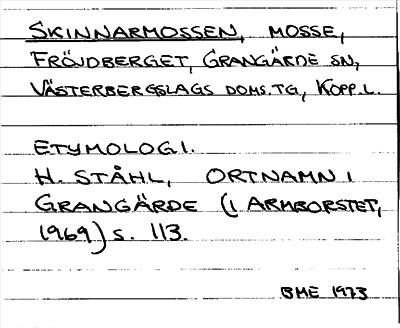 SKINNARMOSSEN, MOSSE,
FRÖJDBERGET, GRANGÄRDE SN,
VÄSTERBERGSLAGS DOMS.TG, KOPP.L.
ETYMOLOGI.
H. STÅHL, ORTNAMN I
GRANGÄRDE (I ARMBORSTET,
1969) S. 113.
BME 1973